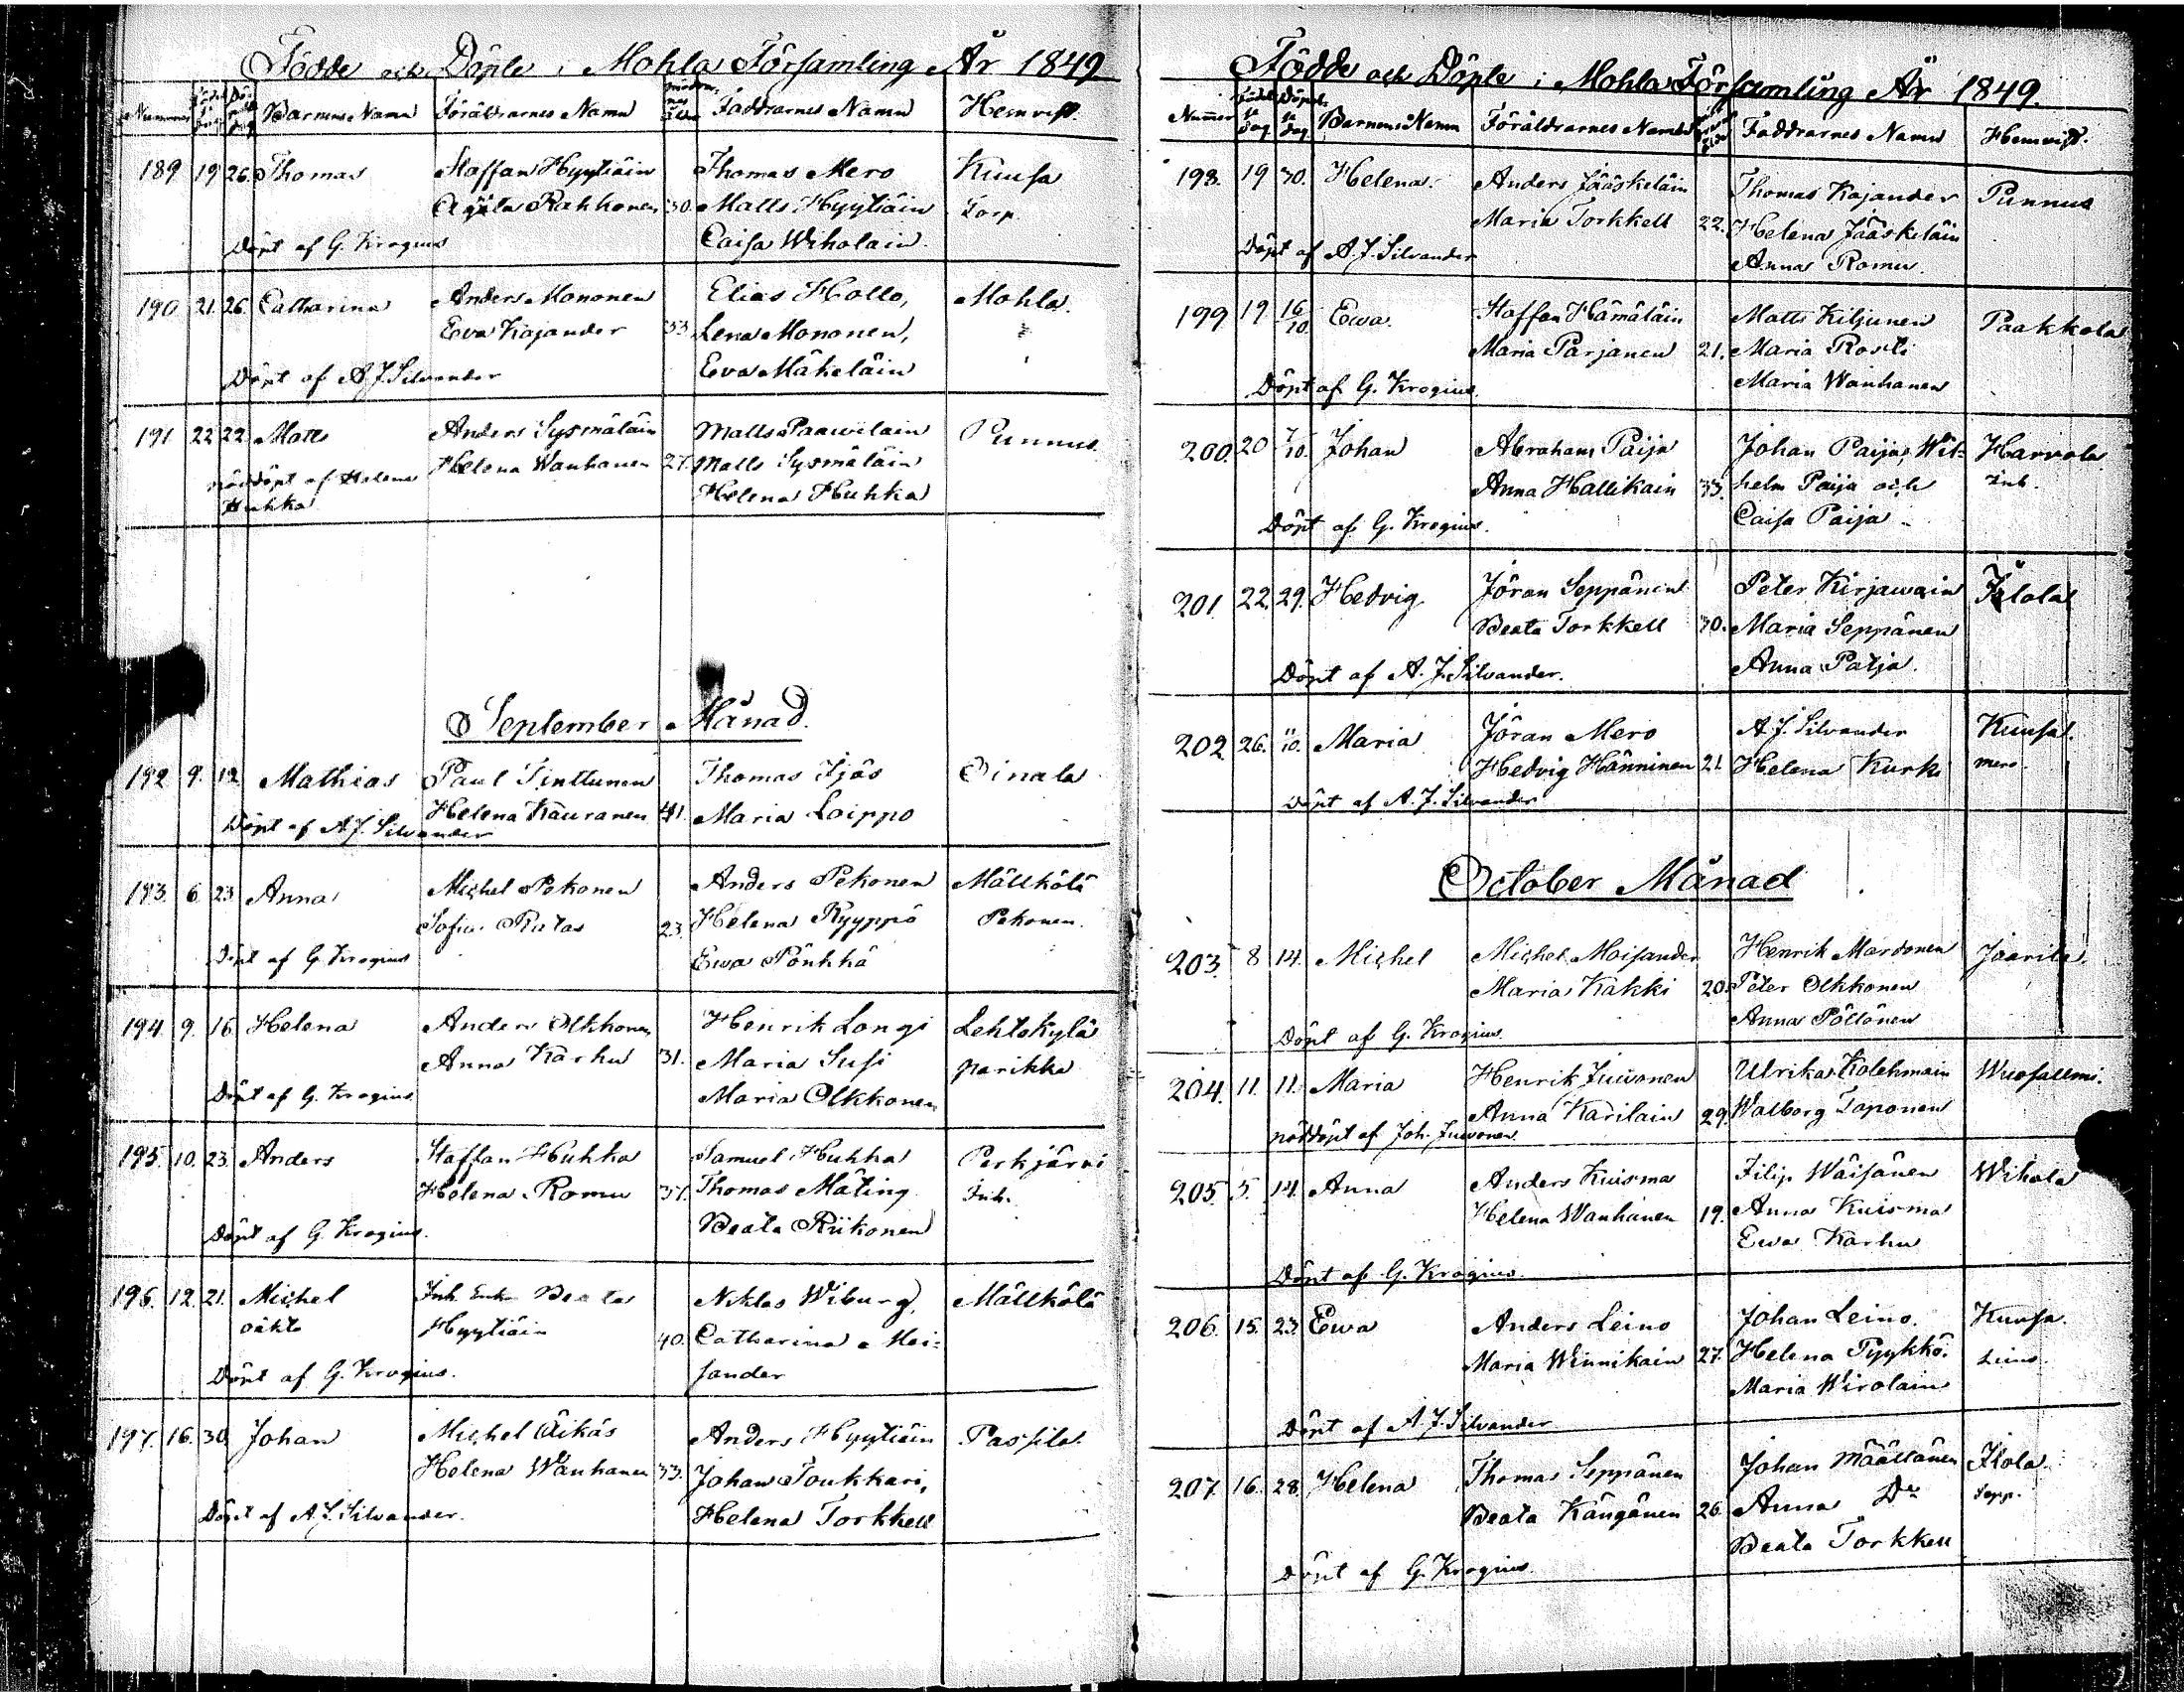 Födde och Döpte i Mohla Församling År 1849
Nummer Födelse dag Döpelse dag Barnens Namn Föräldrarnes Namn Faddrarnes Namn Hemvist.
189 19 26. Thomas Staffan Hyytiäin Thomas Mero Kuusa
Agata Rahkonen 30. Matts Hyytiäin Torp.
Döpt af G. Krogius Caisa Wiholain.
190 21. 26. Catharina Anders Mononen Elias Hollo, Mohla.
Eva Kajander 33. Lena Mononen,
Döpt af A J Silvander Eva Mäkeläin
191 22 22 Matts Anders Sysmäläin Matts Paawilain Punnus.
nöddöpt af Helena Helena Wanhanen 27. Matts Sysmäläin
Huhka Helena Huhka
September Månad.
192 9. 12 Mathias Paul Sinttunen Thomas Ijäs Oinala
Helena Kauranen 41. Maria Loippo
Döpt af A J. Silvander
193. 6 23 Anna Michel Pekonen Anders Pekonen Mällkölä
Sofia Ratas 23. Helena Ryyppö Pekonen.
Döpt af G. Krogius Ewa Pönkkä
194. 9. 16 Helena Anders Olkkonen Henrik Longi Lehtokylä
Anna Karhu 31. Maria Susi parikka
Döpt af G. Krogius Maria Olkkonen
195. 10. 23. Anders Staffan Huhka Samuel Huhka Perkjärvi
Helena Romu 37. Thomas Mäting Inh.
Döpt af G. Krogius. Beata Riikonen
196. 12. 21. Michel Inh. Enk. Beata Niklas Wiburg, Mällkölä
oäkta Hyytiäin 40. Catharina Moi-
Döpt af G. Krogius. sander
197. 16. 30 Johan Michel Äikäs Anders Hyytiäin Passila.
Helena Wanhanen 33. Johan Toukkari,
Döpt af A. J. Silvander. Helena Torkkell
Födde och Döpte i Mohla Församling År 1849.
Nummer Födelse dag Döpelse dag Barnens Namn Föräldrarnes Namn Faddrarnes Namn Hemvist.
198. 19 30. Helena. Anders Jääskeläin Thomas Kajander Punnus
Maria Torkkell 22. Helena Jääskeläin
Döpt af A. J. Silvander Anna Romu.
199 19 16/10. Ewa. Staffan Hämäläin Matts Kiljunen Paakkola
Maria Parjanen 21. Maria Rosti
Döpt af G. Krogius. Maria Wanhanen
200. 20 7/10. Johan Abraham Paija Johan Paija, Wil- Harvola
Anna Hallikain 33. helm Paija och Inh.
Döpt af G. Krogius. Caisa Paija
201. 22. 29. Hedvig Jöran Seppänen Peter Kirjawain Ilola
Beata Torkkell 30. Maria Seppänen
Döpt af A. J. Silvander. Anna Patja.
202 26. 11/10. Maria Jöran Mero A. J. Silvander Kuusa.
Hedvig Hänninen 21 Helena Kurki mero.
Döpt af A. J. Silvander
October Månad
203. 8 14. Michel Michel Moisander Henrik Mardonen Jaarila.
Maria Kakki 20. Peter Olkkonen
Döpt af G. Krogius. Anna Pöllönen
204. 11. 11. Maria Henrik Juvonen Ulrika Kolehmain Wuosallmi.
Anna Karilain 29. Walborg Taponen
nöddöpt af Joh. Juvonen.
205. 5. 14. Anna Anders Kuisma Filip Wäisänen Wihola
Helena Wanhanen 19. Anna Kuisma
Döpt af G. Krogius. Ewa Karhu
206. 15. 23. Ewa Anders Leino Johan Leino. Kuusa.
Maria Winnikain 27. Helena Pyykkö. Leino.
Döpt af A. J. Silvander Maria Wirolain
207. 16. 28. Helena Thomas Seppänen Johan Määttänen Ilola.
Beata Kängänen 26 Anna Do Sepp.
Döpt af G. Krogius. Beata Torkkell